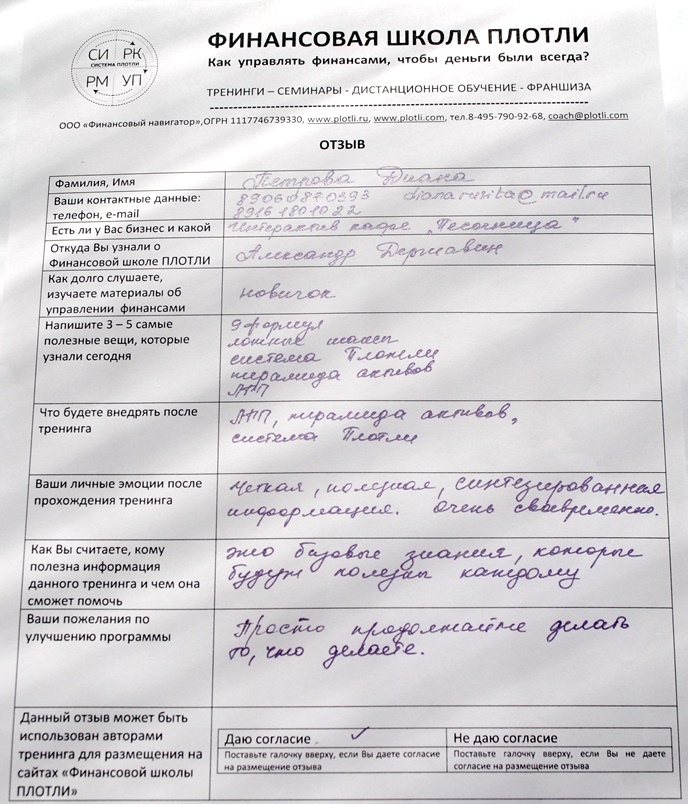 СИ РК
СИСТЕМА ПЛОТЛИ
РМ УП
ФИНАНСОВАЯ ШКОЛА ПЛОТЛИ
Как управлять финансами, чтобы деньги были всегда?
ТРЕНИНГИ – СЕМИНАРЫ - ДИСТАНЦИОННОЕ ОБУЧЕНИЕ - ФРАНШИЗА
ООО «Финансовый навигатор»,ОГРН 1117746739330, www.plotli.ru, www.plotli.com, тел.8-495-790-92-68, coach@plotli.com
ОТЗЫВ
Фамилия, Имя
Петрова Диана
Ваши контактные данные:
телефон, e-mail
89060870393 dianarusita@mail.ru
89161801022
Есть ли у Вас бизнес и какой
Интерактив кафе "Песочница"
Откуда Вы узнали о
Финансовой школе ПЛОТЛИ
Александр Державин
Как долго слушаете,
изучаете материалы об
управлении финансами
новичок
Напишите 3 – 5 самые
полезные вещи, которые
узнали сегодня
9 формул
система Плотли
пирамида активов
ЛФП
Что будете внедрять после
тренинга
ЛФП, пирамида активов,
система Плотли
Ваши личные эмоции после
прохождения тренинга
Четкая, полезная, синтезированная
информация. Очень своевременно.
Как Вы считаете, кому
полезна информация
данного тренинга и чем она
сможет помочь
это базовые знания, которые
будут полезны каждому
Ваши пожелания по
улучшению программы
Просто продолжайте делать
то, что делаете.
Данный отзыв может быть
использован авторами
тренинга для размещения на
сайтах «Финансовой школы
ПЛОТЛИ»
Даю согласие ✓
Не даю согласие
Поставьте галочку вверху, если Вы даете согласие
на размещение отзыва
Поставьте галочку вверху, если Вы не даете
согласие на размещение отзыва